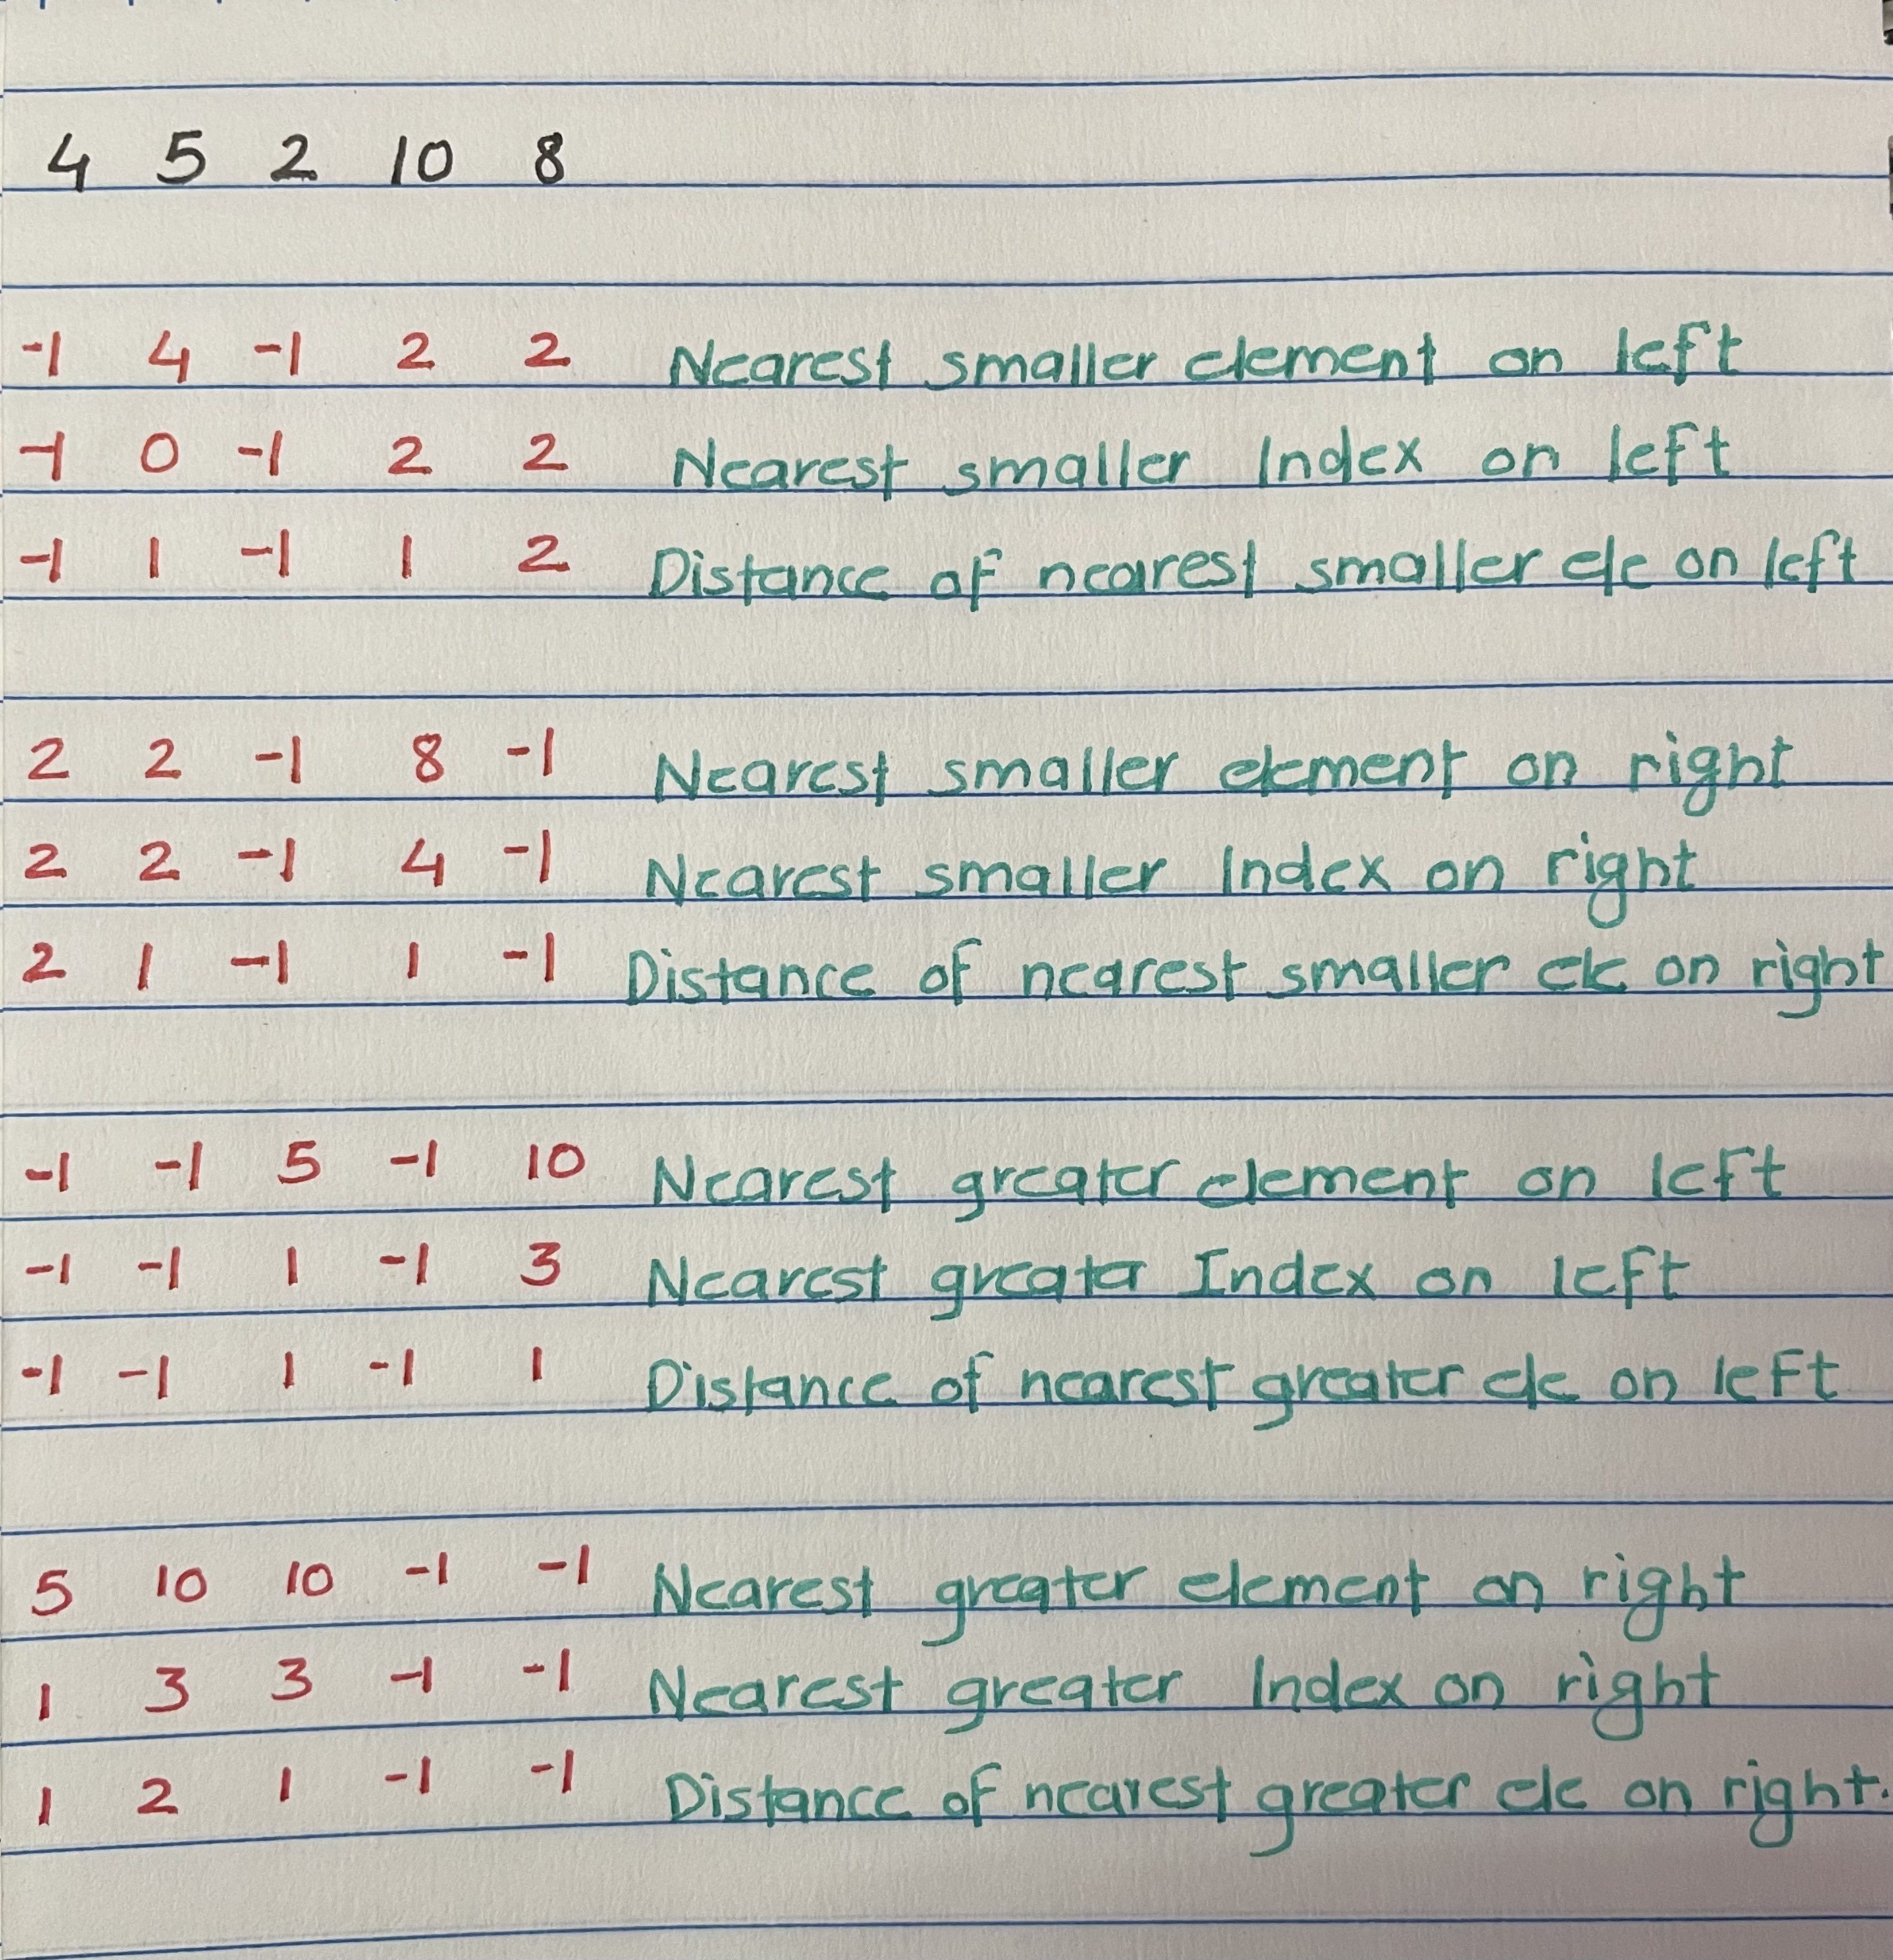 4 5 2 10 8
-1 4 -1 2 2 Nearest smaller element on left
-1 0 -1 2 2 Nearest smaller Index on left
-1 1 -1 1 2 Distance of nearest smaller ele on left
2 2 -1 8 -1 Nearest smaller element on right
2 2 -1 4 -1 Nearest smaller Index on right
2 1 -1 1 -1 Distance of nearest smaller ele on right
-1 -1 5 -1 10 Nearest greater element on left
-1 -1 1 -1 3 Nearest greater Index on left
-1 -1 1 -1 1 Distance of nearest greater ele on left
5 10 10 -1 -1 Nearest greater element on right
1 3 3 -1 -1 Nearest greater Index on right
1 2 1 -1 -1 Distance of nearest greater ele on right.